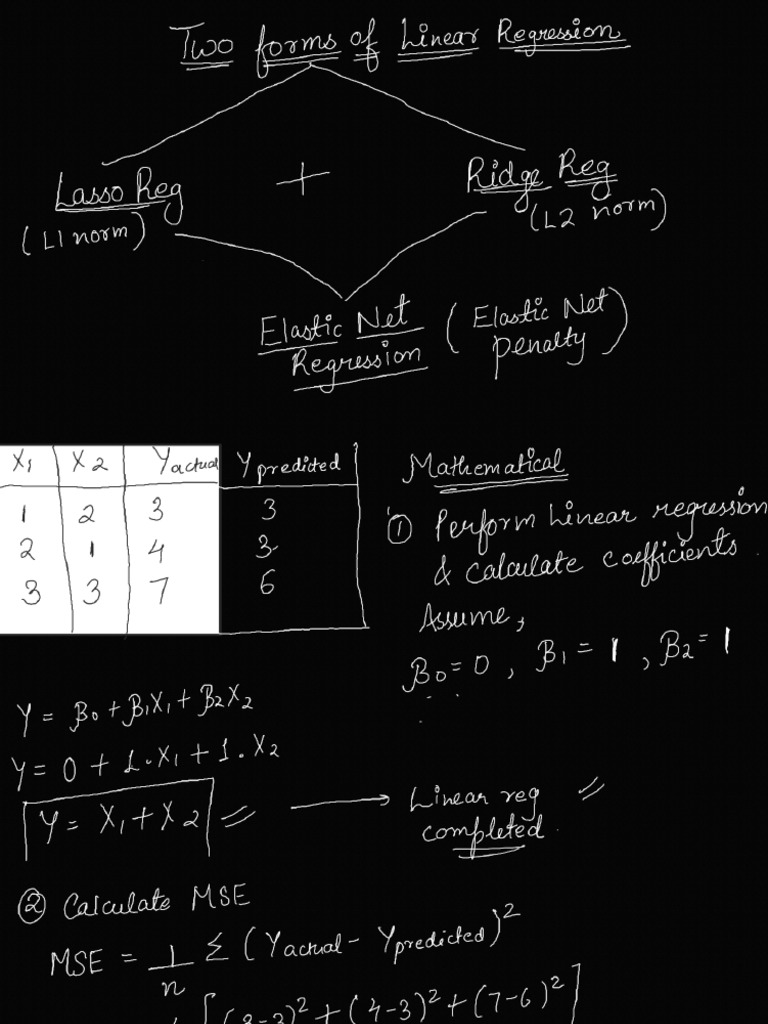 Two forms of Linear Regression
Lasso Reg + Ridge Reg
(L1 norm) (L2 norm)
Elastic Net (Elastic Net
Regression penalty)
X1 X2 Yactual Ypredicted
1 2 3 3
2 1 4 3
3 3 7 6
Mathematical
① Perform Linear regression
& calculate coefficients
Assume,
β0 = 0, β1 = 1, β2 = 1
Y = β0 + β1X1 + β2X2
Y = 0 + 1.X1 + 1.X2
Y = X1 + X2
Linear reg
completed
② Calculate MSE
MSE = 1/n Σ (Yactual - Ypredicted)²
[(3-3)² + (4-3)² + (7-6)²]